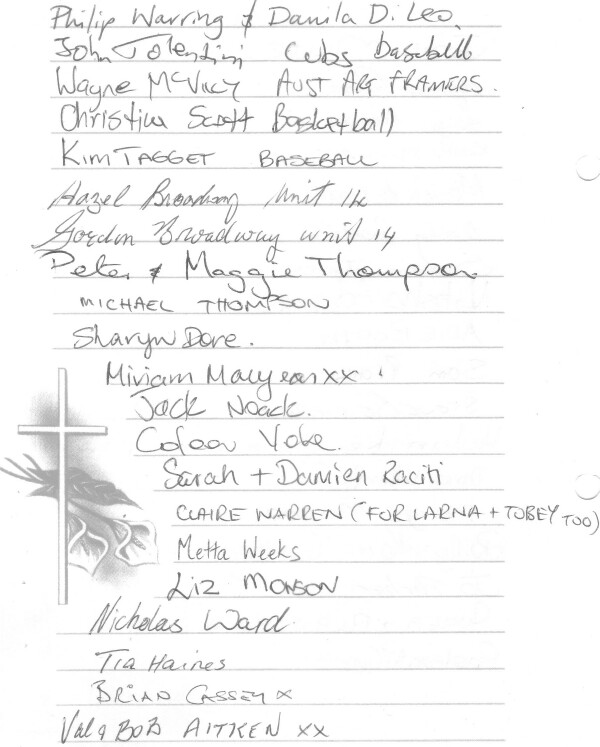 Philip Warring & Danila D. Leo.
John Tolentini Cubs baseball
Wayne McVicy AUST ART FRAMERS.
Christina Scott Basketball
KIM TAGGET BASEBALL
Hazel Broadway Unit 14
Gordon Broadway unit 14
Peter & Maggie Thompson.
MICHAEL THOMPSON
Sharyn Dore.
Miriam xx
Jack Noack.
Sarah + Damien Raciti
CLAIRE WARREN (FOR LARNA + TOBEY TOO)
Metta Weeks
LIZ MONSON
Nicholas Ward.
TIA HAINES
BRIAN CASSEY x
Val & BOB AITKEN xx